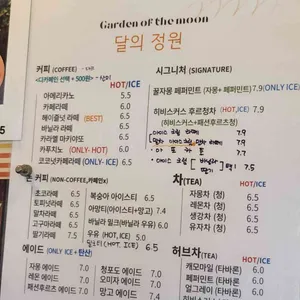 Garden of the moon
달의 정원
커피 (COFFEE)
<디카페인 선택 + 500원>
HOT/ICE
아메리카노 5.5
카페라떼 6.0
헤이즐넛 라떼 (BEST) 6.5
바닐라 라떼 6.5
카라멜 마키아또 6.5
카푸치노 (HOT-ONLY) 6.0
코코넛카페라떼 (ONLY-ICE) 6.5
시그니처 (SIGNATURE)
꿀자몽 페퍼민트 (자몽+ 페퍼민트)7.9(ONLY ICE)
HOT/ICE
히비스커스 후르정차 7.9
(히비스커스+패션후르츠청)
7.9
7.9
아포가토 7.7
바닐라
딸기 7.5
(NON-COFFEE,카페인x)
초코라떼 6.5
토피넛라떼 6.5
말차라떼 6.5
고구마라떼 6.5
딸기라떼 7.5
복숭아 아이스티 6.5
아망티(아이스티+망고) 7.4
바닐라 밀크(바닐라 우유) 6.0
우유 (HOT, ICE) 5.0
(HOT, ICE) 6.5
차(TEA) HOT/ICE
자몽차 (청) 6.5
레몬차 (청) 6.5
생강차 (청) 6.5
유자차 (청) 6.5
에이드 (ONLY ICE +탄산)
자몽 에이드 7.0
레몬 에이드 7.0
패션후르츠 에이드 7.0
청포도 에이드 7.0
오미자 에이드 7.0
망고 에이드 7.4
허브차(TEA) HOT/ICE
캐모마일 (타바론) 6.0
페퍼민트 (타바론) 6.0
얼그레이 (타바론) 6.0
히비스커스 (타바론) 6.0